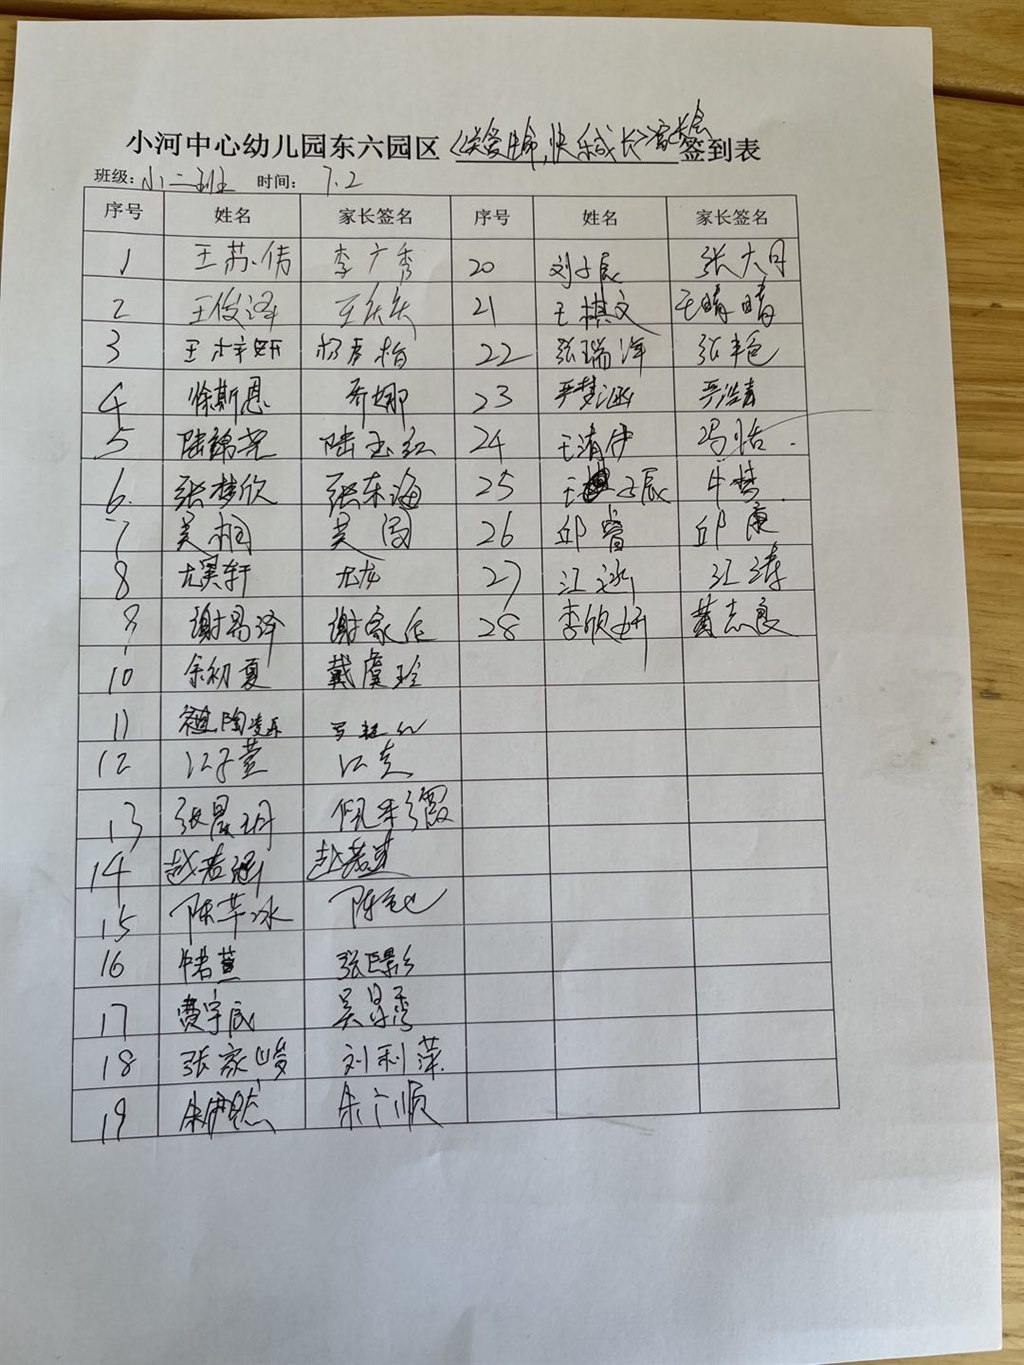 小河中心幼儿园东六园区《关爱生命,快乐成长》家长会签到表
班级: 小二班 时间: 7.2
序号 姓名 家长签名 序号 姓名 家长签名
1 王苏倩 李广秀 20 刘子辰 张大月
2 王俊泽 21 王棋文 王晴晴
3 王梓妍 22 张瑞泽 张艳
4 徐斯恩 乔娜 23 严梦涵 严浩
5 陆锦尧 陆玉红 24 王清伊 冯怡
6 张梦欣 张东海 25 王子辰 牛梦
7 吴桐 吴闯 26 邱睿 邱康
8 尤溪轩 尤龙 27 江涵 江涛
9 谢易泽 谢家任 28 李欣妍 黄志良
10 余初夏 戴虞玲
11
12 江子萱 江克
13 张晨玥 佩霞
14 赵若涵 赵若
15 陈芊冰 陈
16 张影
17 费宇辰 吴景秀
18 张家峻 刘利萍
19 朱伊然 朱广顺